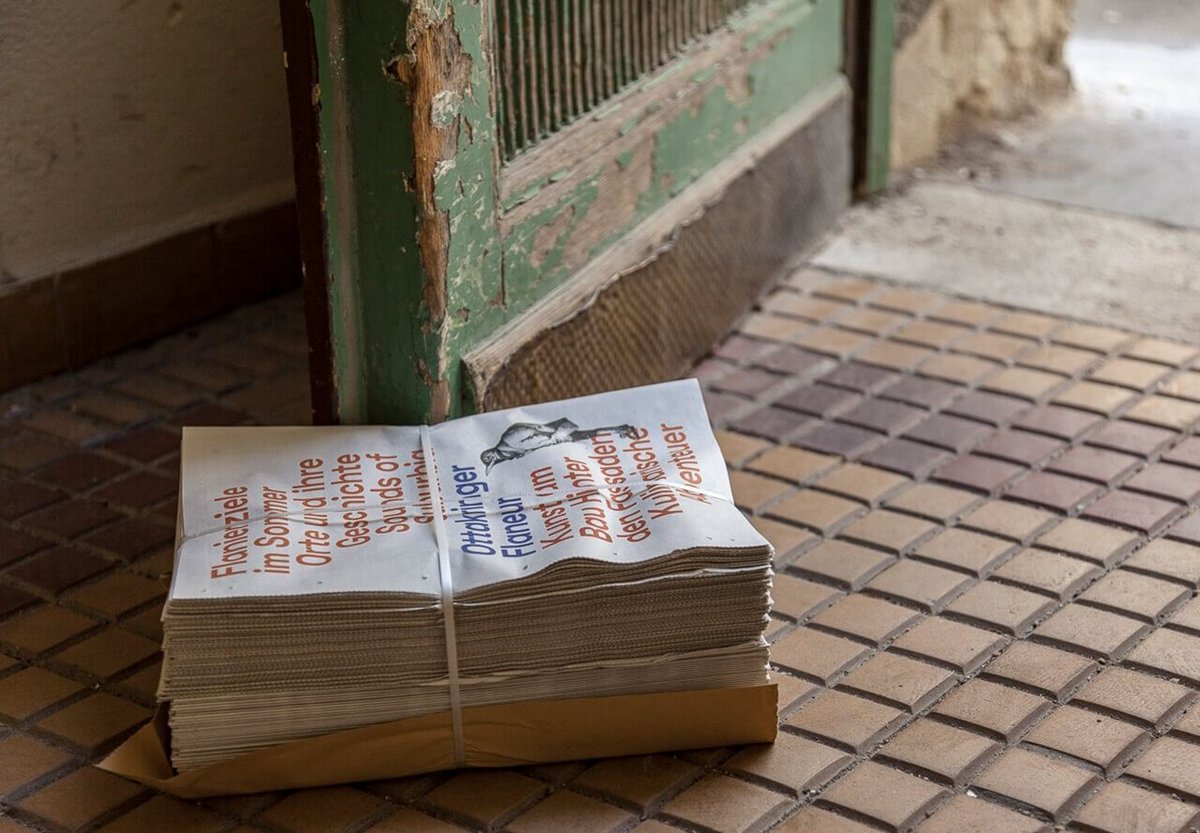 Flanierziele
im Sommer
Orte und ihre
Geschichte
Sounds of
Suburbia
Ottakringer
Flaneur
Kunst im
Bau Hinter
den Fassaden
Kulinarische
Abenteuer